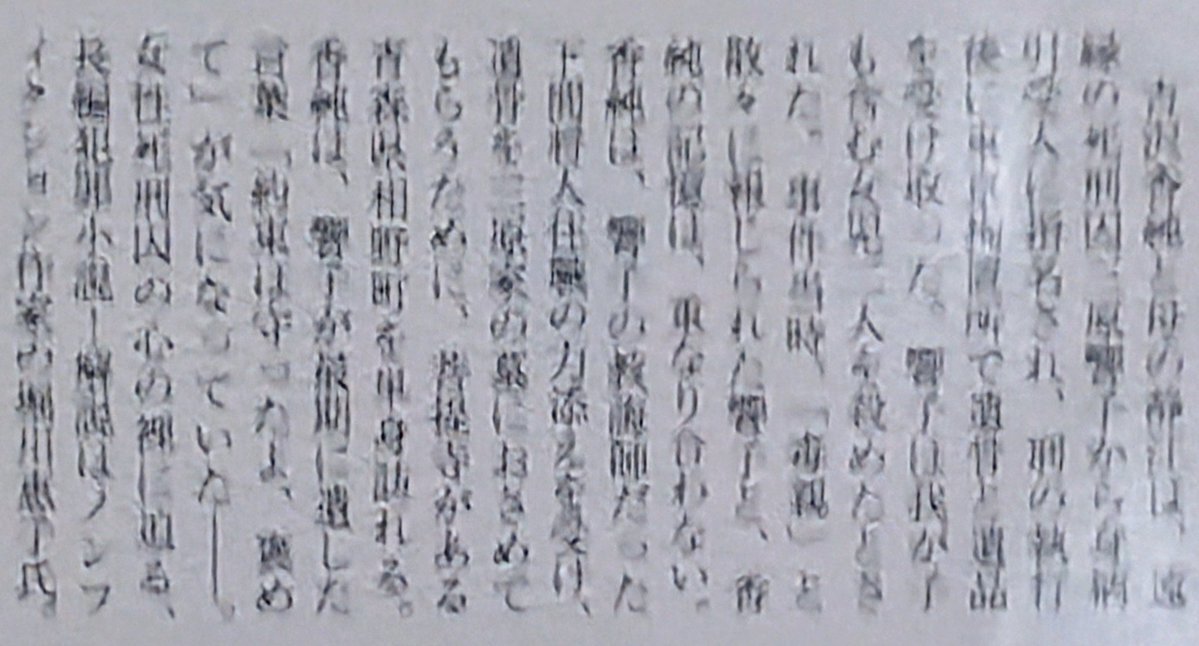 吉沢香純と母の静江は、遠
縁の死刑囚三原響子から身柄
引受人に指名され、刑の執行
後に東京拘置所で遺骨と遺品
を受け取った。響子は我が子
も含む女児二人を殺めたとさ
れた。事件当時、「毒親」と
散々に報じられた響子と、香
純の記憶は、重なり合わない。
香純は、響子の教誨師だった
下間将人住職の力添えを受け、
遺骨を三原家の墓におさめて
もらうために、菩提寺がある
青森県相野町を単身訪れる。
香純は、響子が最期に遺した
言葉「約束は守ったよ、褒め
て」が気になっていた――。
女性死刑囚の心の裡に迫る、
長編犯罪小説！